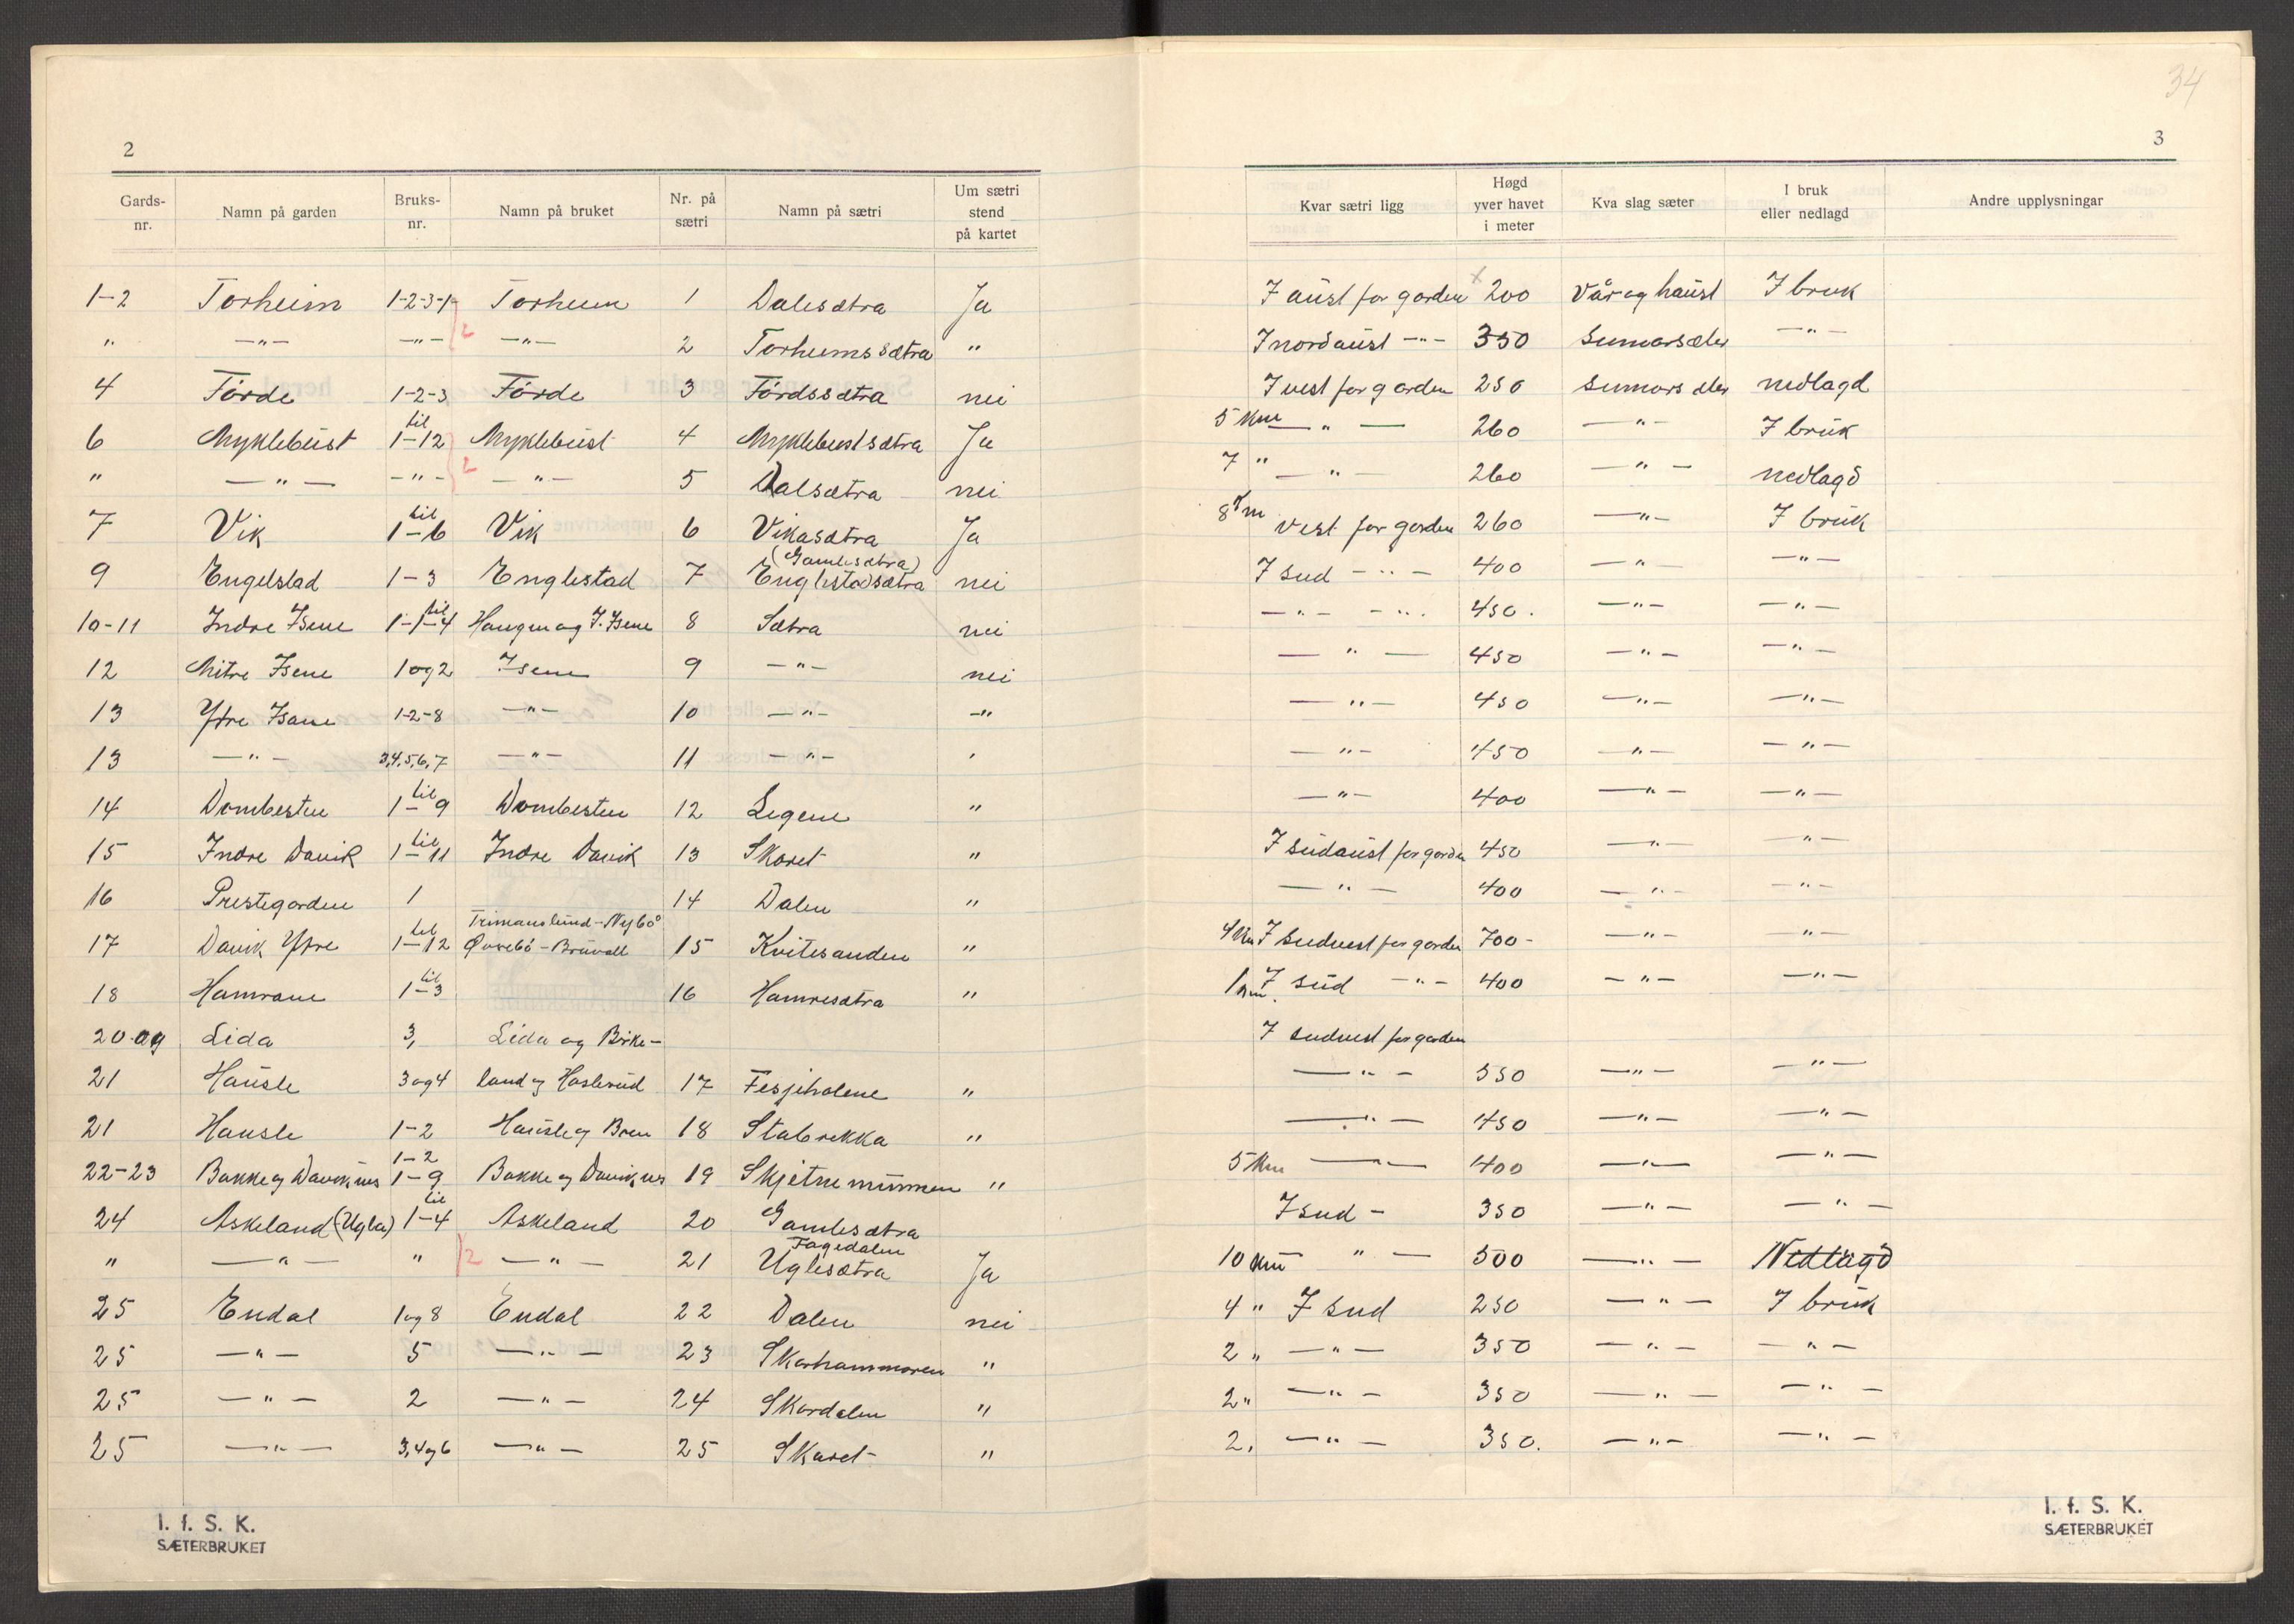 34
2
3
Gards-nr. Namn på garden Bruks-nr. Namn på bruket Nr. på sætri Namn på sætri Um sætri stend på kartet Kvar sætri ligg Høgd yver havet i meter Kva slag sæter I bruk eller nedlagd Andre upplysningar
1-2 Torheim 1-2-3-1 Torheim 1 Dalesætra Ja I aust for garden 200 Vår og haust I bruk
" —"— —"— 2 —"— 2 Torheimssætra " I nordaust —"— 350 Sumarsæter —"—
4 Förde 1-2-3 Förde 3 Fördssætra nei I vest for garden 250 Sumarsæter nedlagd
6 Myklebust 1 til 12 Myklebust 4 Myklebustsætra Ja 5 km —"— 260 —"— I bruk
" —"— —"— 2 —"— 5 Dalsætra nei 7 " —"— 260 —"— nedlagd
7 Vik 1 til 6 Vik 6 Vikasætra Ja 8 km vest for garden 260 —"— I bruk
9 Engelstad 1-3 Englestad 7 (Gamlesætra) Englestadsætra nei I sud —"— 400 —"— —"—
10-11 Indre Isene 1-1 til 4 Haugen og I. Isene 8 Sætra nei —"— —"— 450. —"— —"—
12 Mitre Isene 1 og 2 Isene 9 —"— nei —"— 450 —"— —"—
13 Ytre Isane 1-2-8 —"— 10 —"— —" —"— 450 —"— —"—
13 —"— 3,4,5,6,7 —"— 11 —"— " —"— 450 —"— —"—
14 Dombesten 1 til 9 Dombesten 12 Legene " —"— 400 —"— —"—
15 Indre Davik 1 til 11 Indre Davik 13 Skoret " I sudaust for garden 450 —"— —"—
16 Prestegarden 1 14 Dalen " —"— 400 —"— —"—
17 Davik Ytre 1 til 12 Trimanslund - Nybö Øvrebö - Bruvoll 15 Kvitesanden " 4 km I sudvest for garden 700- —"— —"—
18 Hamrane 1 til 3 16 Hamresætra " 1 km. I sud —"— 400 —"— —"—
20 og Lida 3, Lida og Birke- I sudvest for garden
21 Hausle 3 og 4 land og Haslerud 17 Fesjeholene " —"— 550 —"— —"—
21 Hausle 1-2 Hausle og Bren 18 Stabrekka " —"— 450 —"— —"—
22-23 Bakke og Daviknes 1-2 1-9 Bakke og Daviknes 19 Skjetnemunnen " 5 km —"— 400 —"— —"—
24 Askeland (Ugla) 1 til 4 Askeland 20 Gamlesætra I sud - 350 —"— —"—
" —"— " 2 —"— 21 Fagedalen Uglesætra Ja 10 km " — 500 —"— Nedlagd
25 Endal 1 og 8 Endal 22 Dalen nei 4 " I sud 250 —"— I bruk
25 —"— 5 —"— 23 Skorhammaren " 2 " —"— 350 —"— —"—
25 —"— 2 —"— 24 Skordalen " 2 " —"— 350 —"— —"—
25 —"— 3,4 og 6 —"— 25 Skaret " 2, —"— 350. —"— —"—
I. f. S. K.
SÆTERBRUKET
I. f. S. K.
SÆTERBRUKET